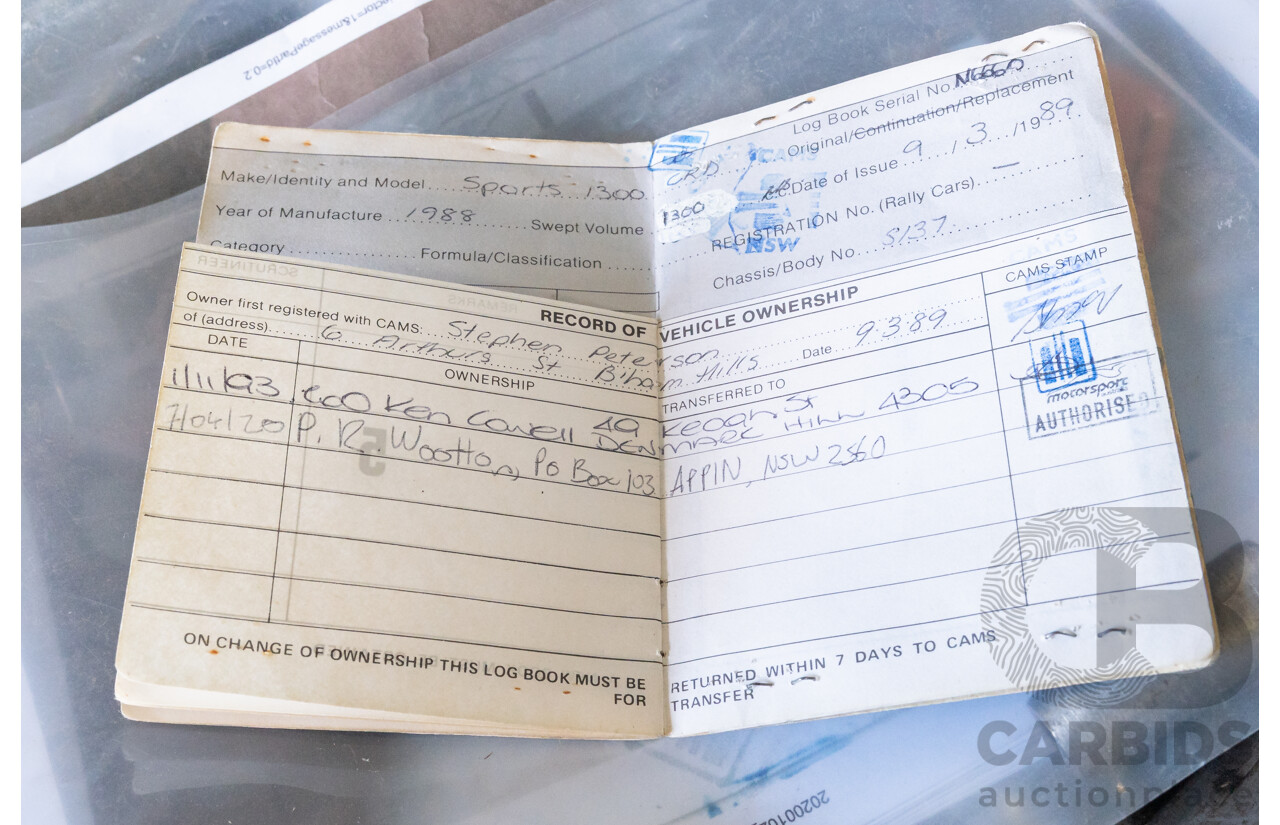 ector=1&messagePartId=0.2
Log Book Serial No. N6660
Original/Continuation/Replacement
Make/Identity and Model Sports 1300
Date of Issue 9/3/1989
Year of Manufacture 1988 Swept Volume 1300 c.c.
REGISTRATION No. (Rally Cars) —
CAMS
NSW
Category Formula/Classification
Chassis/Body No. S137
SCRUTINEER
REMARKS
RECORD OF VEHICLE OWNERSHIP
CAMS STAMP
Owner first registered with CAMS: Stephen Peterson Date 9.3.89
of (address) 6 Arthurs St B'ham Hills
DATE OWNERSHIP TRANSFERRED TO
1/11/93 Ken Cowell 49 Keogh St
DENMARK HILL 4305
7/04/20 P. R. Wootton, Po Box 103 APPIN, NSW 2560
motorsport
AUTHORISED
5
ON CHANGE OF OWNERSHIP THIS LOG BOOK MUST BE RETURNED WITHIN 7 DAYS TO CAMS
FOR TRANSFER
CARBIDS
auctionplace